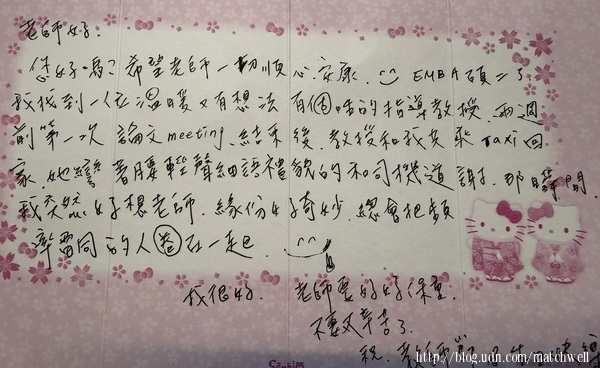 老師好：
您好嗎？希望老師一切順心、安康. EMBA 碩二了
我找到一位溫暖又有想法有個味的指導教授. 兩週
前第一次論文meeting. 結束後, 教授和我共乘Taxi回
家. 她彎著腰輕聲細語禮貌的和司機道謝. 那瞬間.
我突然好想老師. 緣份好奇妙. 總會把頻
率雷同的人圈在一起
我很好. 老師要好好保重.
不要太辛苦了.
祝. 教師節
http://blog.udn.com/matchwell